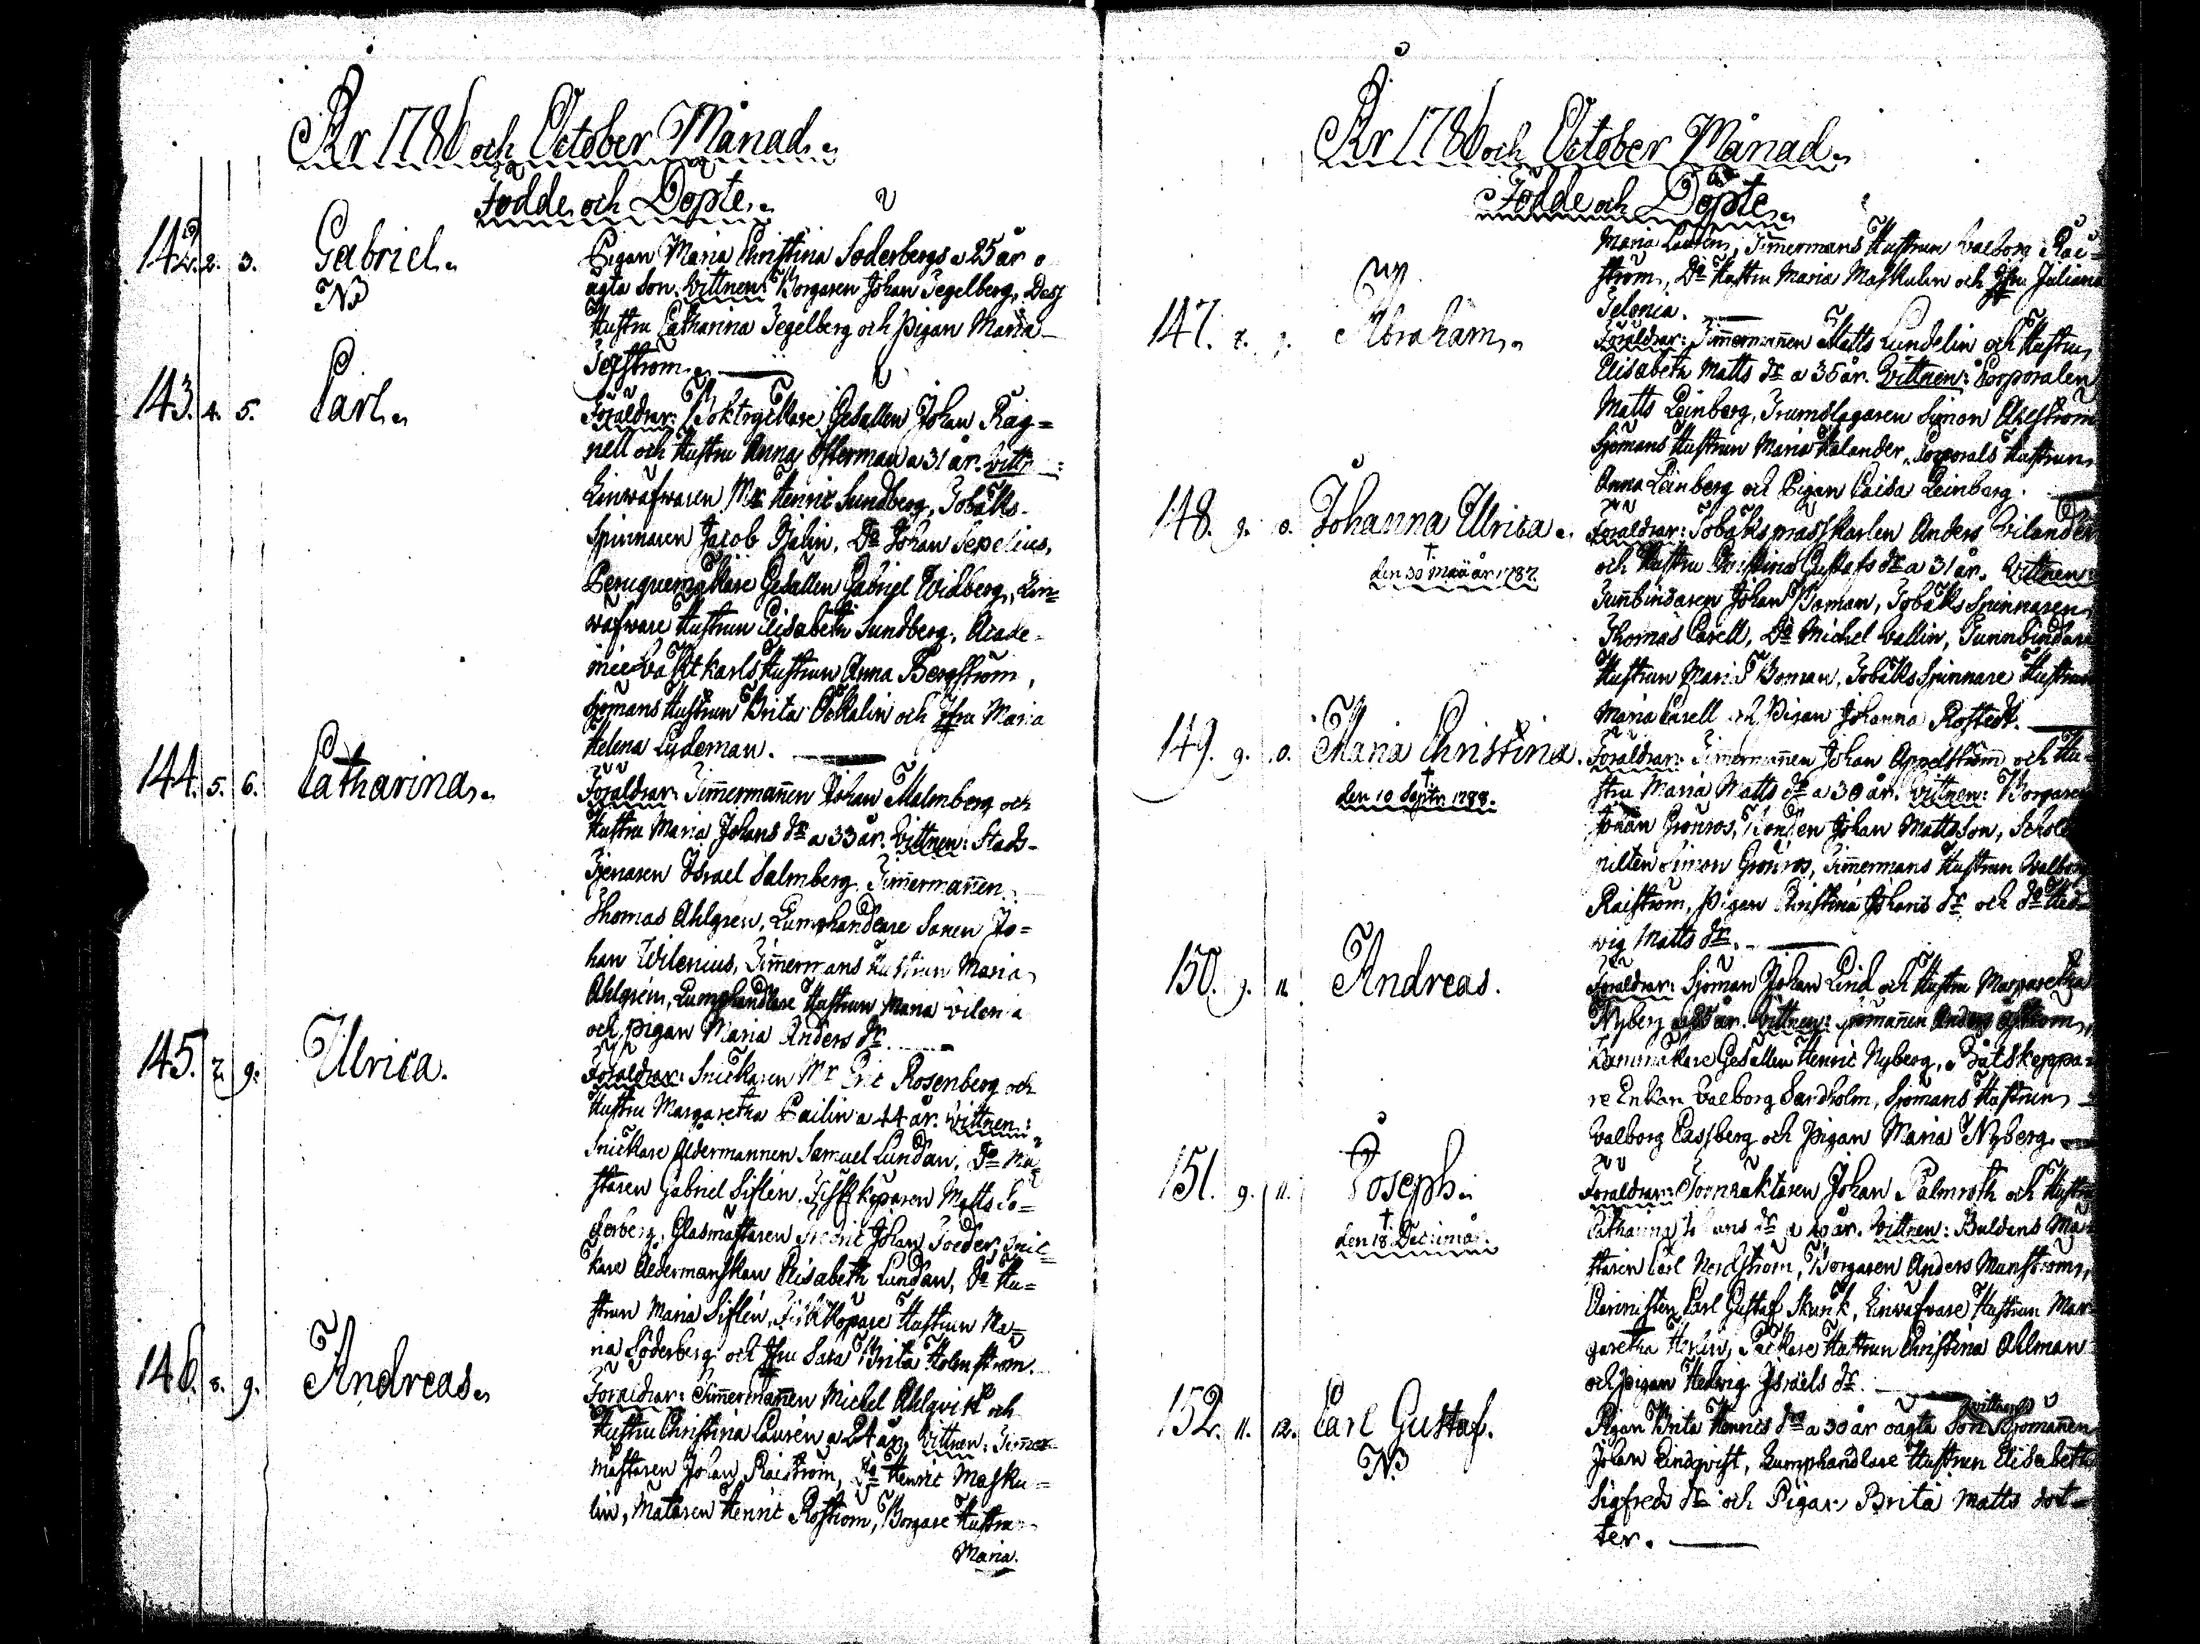 År 1786 och October Månad.
Födde och Döpte.
142. 2. 3. Gabriel.
NB
Pigan Maria Christina Söderbergs a 25 år o
ägta Son. Vittnen: Borgaren Johan Tegelberg, Dess
Hustru Catharina Tegelberg och Pigan Maria
143. 4. 5. Carl.
Föräldrar: Boktryckare Gesällen Johan Rag=
nell och Hustru Anna Österman a 31 år. Vittn:
Linwäfwaren Mr Henric Sundberg, Tobaks
Spinnaren Jacob Hjalin, Do Johan Sepelius,
Peruquemakare Gesällen Gabriel Widberg, Lin=
wäfware Hustrun Elisabeth Sundberg, Acade=
mie Vaktkarls Hustrun Anna Bergström,
Sjömans Hustrun Brita Öckalin och Jfru Maria
Helena Lydeman.
144. 5. 6. Catharina.
Föräldrar: Timmermannen Johan Malmberg och
Hustru Maria Johans dr a 33 år. Vittnen: Stads-
Tjenaren Israel Salmberg, Timmermannen
Thomas Ahlgren, Lumphandlare Sonen Jo=
han Wilenius, Timmermans Hustrun Maria
Ahlgren, Lumphandlare Hustrun Maria Vilenia
och Pigan Maria Anders dr.
145. 7. 9. Ulrica.
Föräldrar: Snickaren Mr Eric Rosenberg och
Hustru Margaretha Cailin a 44 år. Vittnen:
Snickare Åldermannen Samuel Lundan, Do Mä=
staren Gabriel Siflén, Fiskköparen Matts Sö=
derberg, Glasmästaren Johan Soeder, Snic=
kare Åldermanskan Elisabeth Lundan, Do Hu=
strun Maria Siflén, Fiskköpare Hustrun Ma=
ria Söderberg och Jfru Sara Brita Holmström.
146. 8. 9. Andreas.
Föräldrar: Timmermannen Michel Ahlqvist och
Hustru Christina Laurén a 24 år. Vittnen: Timmer-
mästaren Johan Raiström, Do Henric Masku=
lin, Mätaren Henric Roström, Borgare Hustru
Maria.
År 1786 och October Månad.
Födde och Döpte.
Maria Laurén, Timmermans Hustrun Valborg Rai=
ström, Do Hustru Maria Maskulin och Jfru Juliana
147. 7. Abraham.
Föräldrar: Timmermannen Matts Lundelin och Hustru
Elisabeth Matts dr a 36 år. Vittnen: Corporalen
Matts Leinberg, Trumslagaren Simon Ahlström
Sjömans Hustrun Maria Kalander, Corporals Hustrun
Anna Leinberg och Pigan Caisa Leinberg.
148. 9. Johanna Ulrica.
† den 30 Maii år 1787.
Föräldrar: Tobaksprässkarlen Anders Vilander
och Hustru Christina Gustafs dr a 31 år. Vittnen:
Tunnbindaren Johan Boman, Tobaks Spinnaren
Thomas Carell, Do Michel Vallin, Tunnbindare
Hustrun Maria Boman, Tobaks Spinnare Hustrun
Maria Carell och Pigan Johanna Rostedt.
149. 9. Maria Christina.
† den 10 Septr 1788.
Föräldrar: Timmermannen Johan Appelström och Hu=
stru Maria Matts dr a 30 år. Vittnen: Borgaren
Johan Grönros, Bonden Johan Mattsson,
Simon Grönros, Timmermans Hustrun Valborg
Raiström, Pigan Christina Johans dr och Do Hed=
vig Matts dr.
150. 9. 11. Andreas.
Föräldrar: Sjöman Johan Lind och Hustru Margaretha
Nyberg a 25 år. Vittnen: Sjömannen Anders
Kammakare Gesällen Henric Nyberg, Båtskeppa=
re Enkan Valborg Sandholm, Sjömans Hustrun
Valborg Cassberg och Pigan Maria Nyberg.
151. 9. 11. Joseph.
† den 18 Dec:
Föräldrar: Johan Palmroth och Hustru
Catharina Johans dr a 40 år. Vittnen: Buldans Mä=
staren Carl Nordström, Borgaren Anders Manström,
Carl Gustaf Skunk, Linwäfware Hustrun Mar=
garetha Packare Hustrun Christina Ahlman
och Pigan Hedwig Israels dr.
152. 11. 12. Carl Gustaf.
NB
Pigan Brita Henrics dr a 30 år oägta Son. vittnen: Sjömannen
Johan Lindqvist, Lumphandlare Hustrun Elisabeth
Sigfreds dr och Pigan Brita Matts dot=
ter.